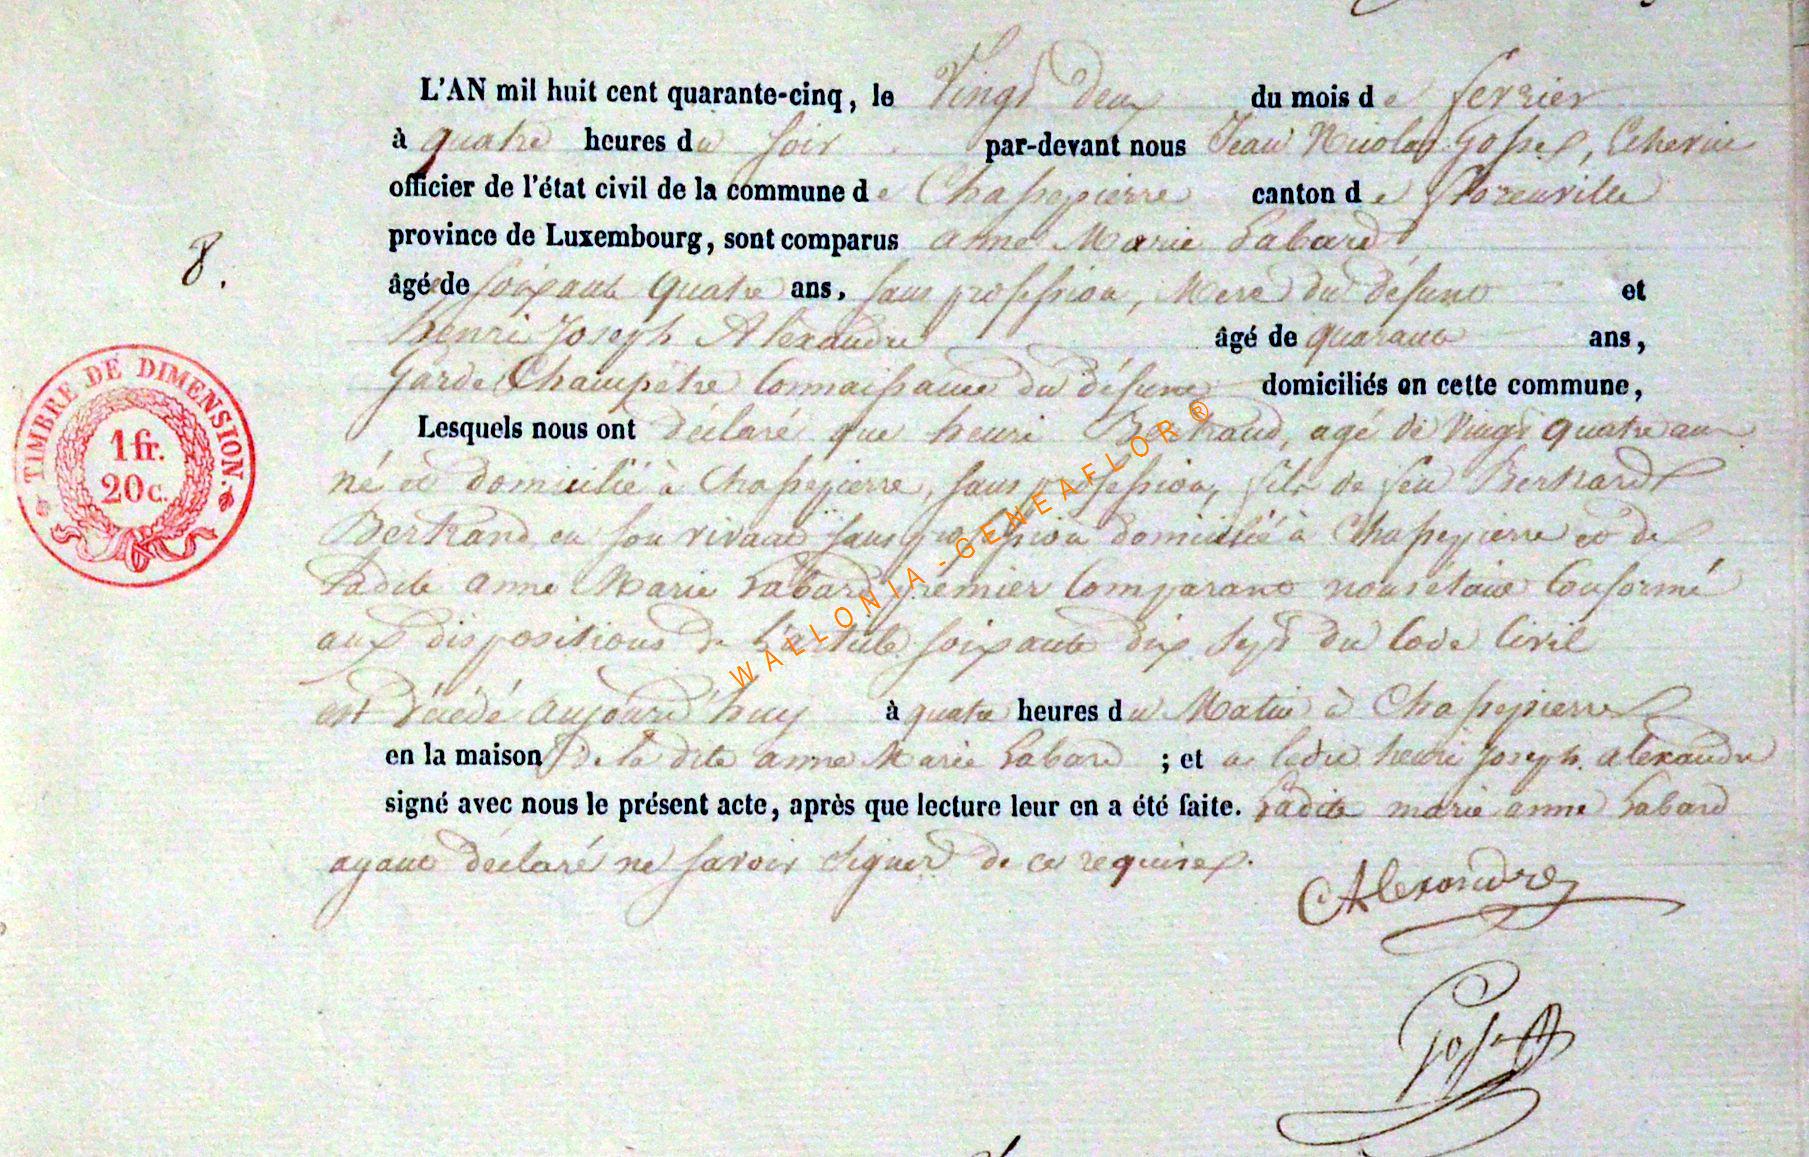 L'AN mil huit cent quarante-cinq, le Vingt deux du mois de fevrier
à quatre heures du soir par-devant nous Jean Nicolas Gosset, Echevin
officier de l'état civil de la commune de Chassepierre canton de Florenville
province de Luxembourg, sont comparus anne Marie Labard
8.
âgée de soixante quatre ans, sans profession, Mere du défunt et
henri Joseph Alexandre âgé de quarante ans,
Garde Champêtre Connaissance du défunt domiciliés en cette commune,
Lesquels nous ont déclaré que henri Bertrand, agé de Vingt quatre ans
né et domicilié à Chassepierre, sans profession, fils de feu Bertrand
Bertrand en son vivant sans profession domicilié à Chassepierre et de
Ladite anne Marie Labard prémier Comparant nous étant Conformé
aux dispositions de L'article soixante dix sept du Code Civil
est Décédé aujourd'huy à quatre heures du Matin à Chassepierre
en la maison de la dite anne Marie Labard ; et a ledit henri Joseph alexandre
signé avec nous le présent acte, après que lecture leur en a été faite. Ladite marie anne Labard
ayant déclaré ne savoir signer de ce requise.
Alexandre
Gosset
TIMBRE DE DIMENSION.
1 fr.
20 c.
WALLONIA-GENEAFLOR®